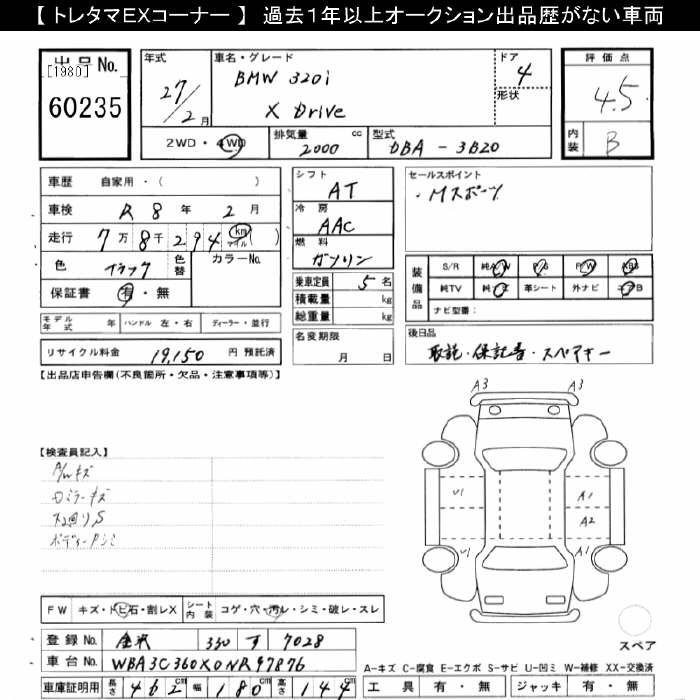 【 トレタマEXコーナー 】 過去1年以上オークション出品歴がない車両
出品No.
[1980]
60235
年式
27/2月
車名・グレード
BMW 320i
X Drive
ドア
4
形状
評価点
4.5
内装
B
2WD・4WD
排気量
2000
cc
型式
DBA - 3B20
車歴 自家用・( )
車検 R 8 年 2 月
走行 7万 8千 294 km マイル ( )
色 ブラック
色替
カラーNo.
保証書 有・無
シフト
AT
冷房
AAC
燃料
ガソリン
乗車定員 5 名
積載量 kg
総重量 kg
セールスポイント
・Mスポーツ
装備品
S/R 純A/W P/S P/W ABS
純TV 純ナビ 革シート 外ナビ エアB
ナビ型番:
モデル年式 年 ハンドル 左・右 ディーラー・並行
リサイクル料金 19,150 円 預託済
名変期限
月 日
後日品
取説・保証書・スペアキー
【出品店申告欄(不良箇所・欠品・注意事項等)】
A3 A3
【検査員記入】
A/Wキズ
ロミラーキズ
ボディーシミ
U1 A1
A2
U1 A1
FW キズ・トビ石・割レX
シート内装 コゲ・穴・汚レ・シミ・破レ・スレ
登録No. 金沢 330 す 7028
車台No. WBA3C360X0NR97876
車庫証明用 長さ 462 cm 幅 180 cm 高さ 144 cm
スペア
A-キズ C-腐食 E-エクボ S-サビ U-凹ミ W-補修 XX-交換済
工具 有・無 ジャッキ 有・無